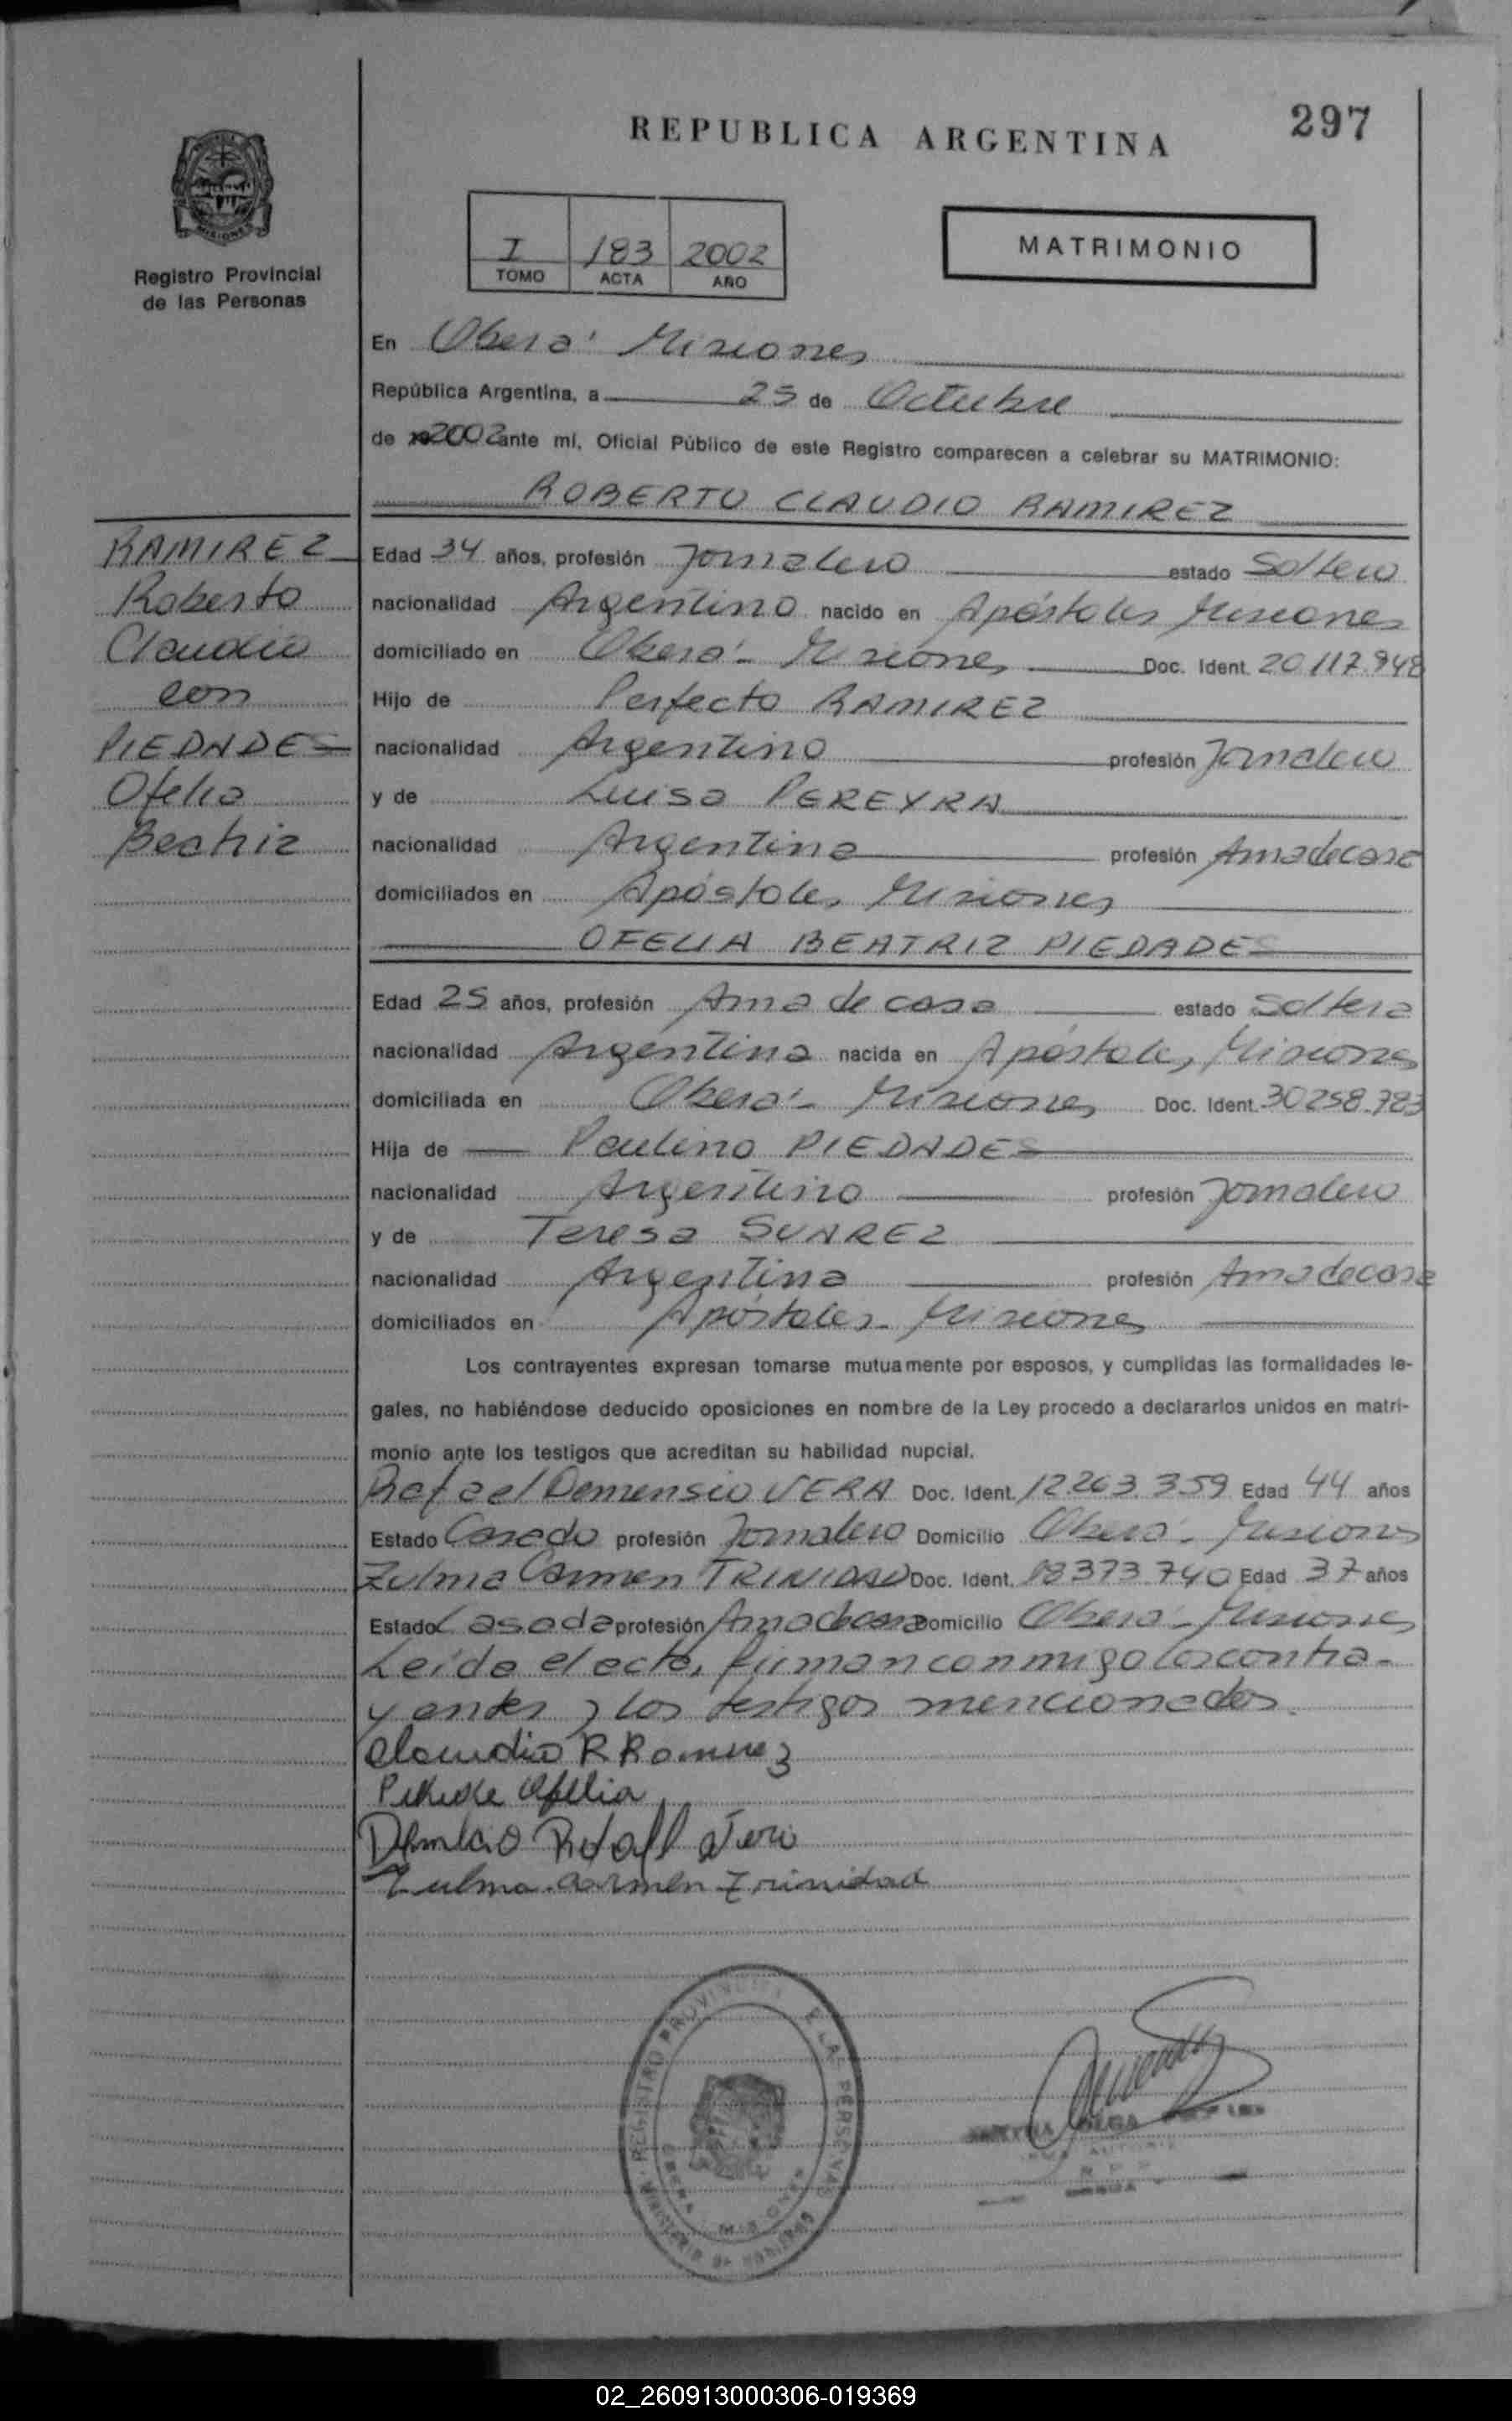 297
REPUBLICA ARGENTINA
I 183 2002
TOMO ACTA AÑO
MATRIMONIO
Registro Provincial
de las Personas
En Oberá Misiones
República Argentina, a 25 de Octubre
de 2002 ante mí, Oficial Público de este Registro comparecen a celebrar su MATRIMONIO:
ROBERTO CLAUDIO RAMIREZ
RAMIREZ
Roberto
Claudio
con
PIEDADES
Ofelia
Beatriz
Edad 34 años, profesión Jornalero estado Soltero
nacionalidad Argentino nacido en Apóstoles Misiones
domiciliado en Oberá - Misiones Doc. Ident. 20.117.948
Hijo de Perfecto RAMIREZ
nacionalidad Argentino profesión Jornalero
y de Luisa PEREYRA
nacionalidad Argentina profesión Ama de casa
domiciliados en Apóstoles Misiones
OFELIA BEATRIZ PIEDADES
Edad 25 años, profesión Ama de casa estado Soltera
nacionalidad Argentina nacida en Apóstoles, Misiones
domiciliada en Oberá - Misiones Doc. Ident. 30258.783
Hija de Paulino PIEDADES
nacionalidad Argentino profesión Jornalero
y de Teresa SUAREZ
nacionalidad Argentina profesión Ama de casa
domiciliados en Apóstoles - Misiones
Los contrayentes expresan tomarse mutuamente por esposos, y cumplidas las formalidades le-
gales, no habiéndose deducido oposiciones en nombre de la Ley procedo a declararlos unidos en matri-
monio ante los testigos que acreditan su habilidad nupcial.
Rafael Demensio VERA Doc. Ident. 12.263.359 Edad 44 años
Estado Casado profesión Jornalero Domicilio Oberá - Misiones
Zulma Carmen TRINIDAD Doc. Ident. 18373.740 Edad 37 años
Estado Casada profesión Ama de casa Domicilio Oberá - Misiones
Leída el acta, firman conmigo los contra-
yentes y los testigos mencionados.
Claudio R Ramirez
Ofelia
Zulma Carmen Trinidad
REGISTRO PROVINCIAL DE LAS PERSONAS
MINISTERIO DE GOBIERNO
OBERA MISIONES
02_260913000306-019369